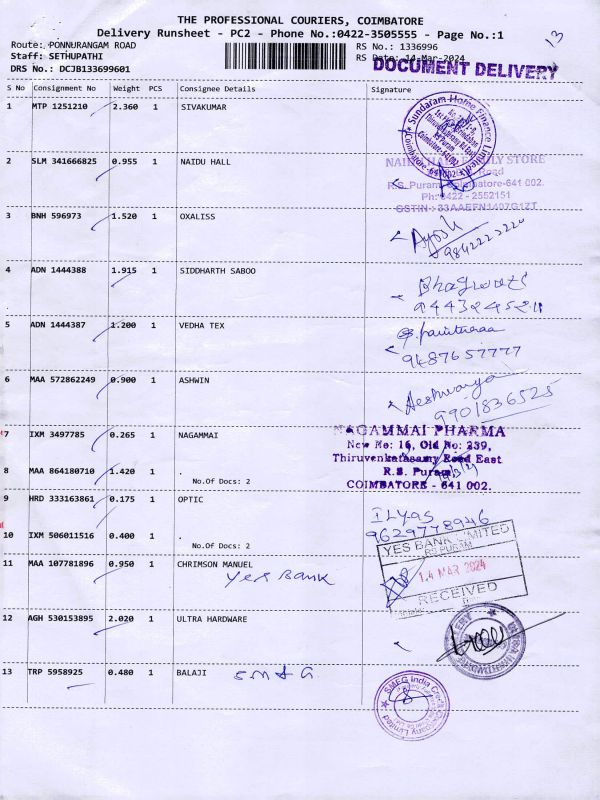 THE PROFESSIONAL COURIERS, COIMBATORE
Delivery Runsheet - PC2 - Phone No.:0422-3505555 - Page No.:1
13
Route: PONNURANGAM ROAD
RS No.: 1336996
Staff: SETHUPATHI
RS Date: 14-Mar-2024
DRS No.: DCJB133699601
DOCUMENT DELIVERY
S No Consignment No Weight PCS Consignee Details Signature
1 MTP 1251210 2.360 1 SIVAKUMAR
Sundaram Home Finance Limited
Coimbatore-641 002
2 SLM 341666825 0.955 1 NAIDU HALL
NAIDU HALL FAMILY STORE
Road
R.S. Puram, Coimbatore-641 002.
Ph: 0422 - 2552151
GSTIN : 33AAEFN1407G1ZT
3 BNH 596973 1.520 1 OXALISS
Ayosh
4 ADN 1444388 1.915 1 SIDDHARTH SABOO
Bhagwati
5 ADN 1444387 1.200 1 VEDHA TEX
9487657777
6 MAA 572862249 0.900 1 ASHWIN
Aeshwarya
9901836525
7 IXM 3497785 0.265 1 NAGAMMAI
NAGAMMAI PHARMA
New No: 16, Old No: 239,
Thiruvenkatasamy Road East
R.S. Puram,
COIMBATORE - 641 002.
8 MAA 864180710 1.420 1 .
No.Of Docs: 2
9 HRD 333163861 0.175 1 OPTIC
ILyas
9629778946
10 IXM 506011516 0.400 1 .
No.Of Docs: 2
YES BANK LIMITED
RS PURAM
14 MAR 2024
RECEIVED
11 MAA 107781896 0.950 1 CHRIMSON MANUEL
Yes Bank
12 AGH 530153895 2.020 1 ULTRA HARDWARE
13 TRP 5958925 0.480 1 BALAJI
SMFG
SMFG India Credit Company Limited